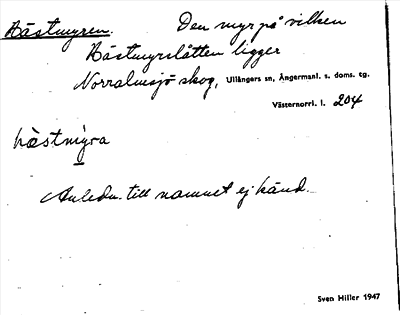 Hästmyren. Den myr på vilken
Hästmyrslåtten ligger
Norralmsjö skog, Ullångers sn, Ångermanl. s. doms. tg.
Västernorrl. l. 204
hæstmýra
Anledn. till namnet ej känd.
Sven Hiller 1947